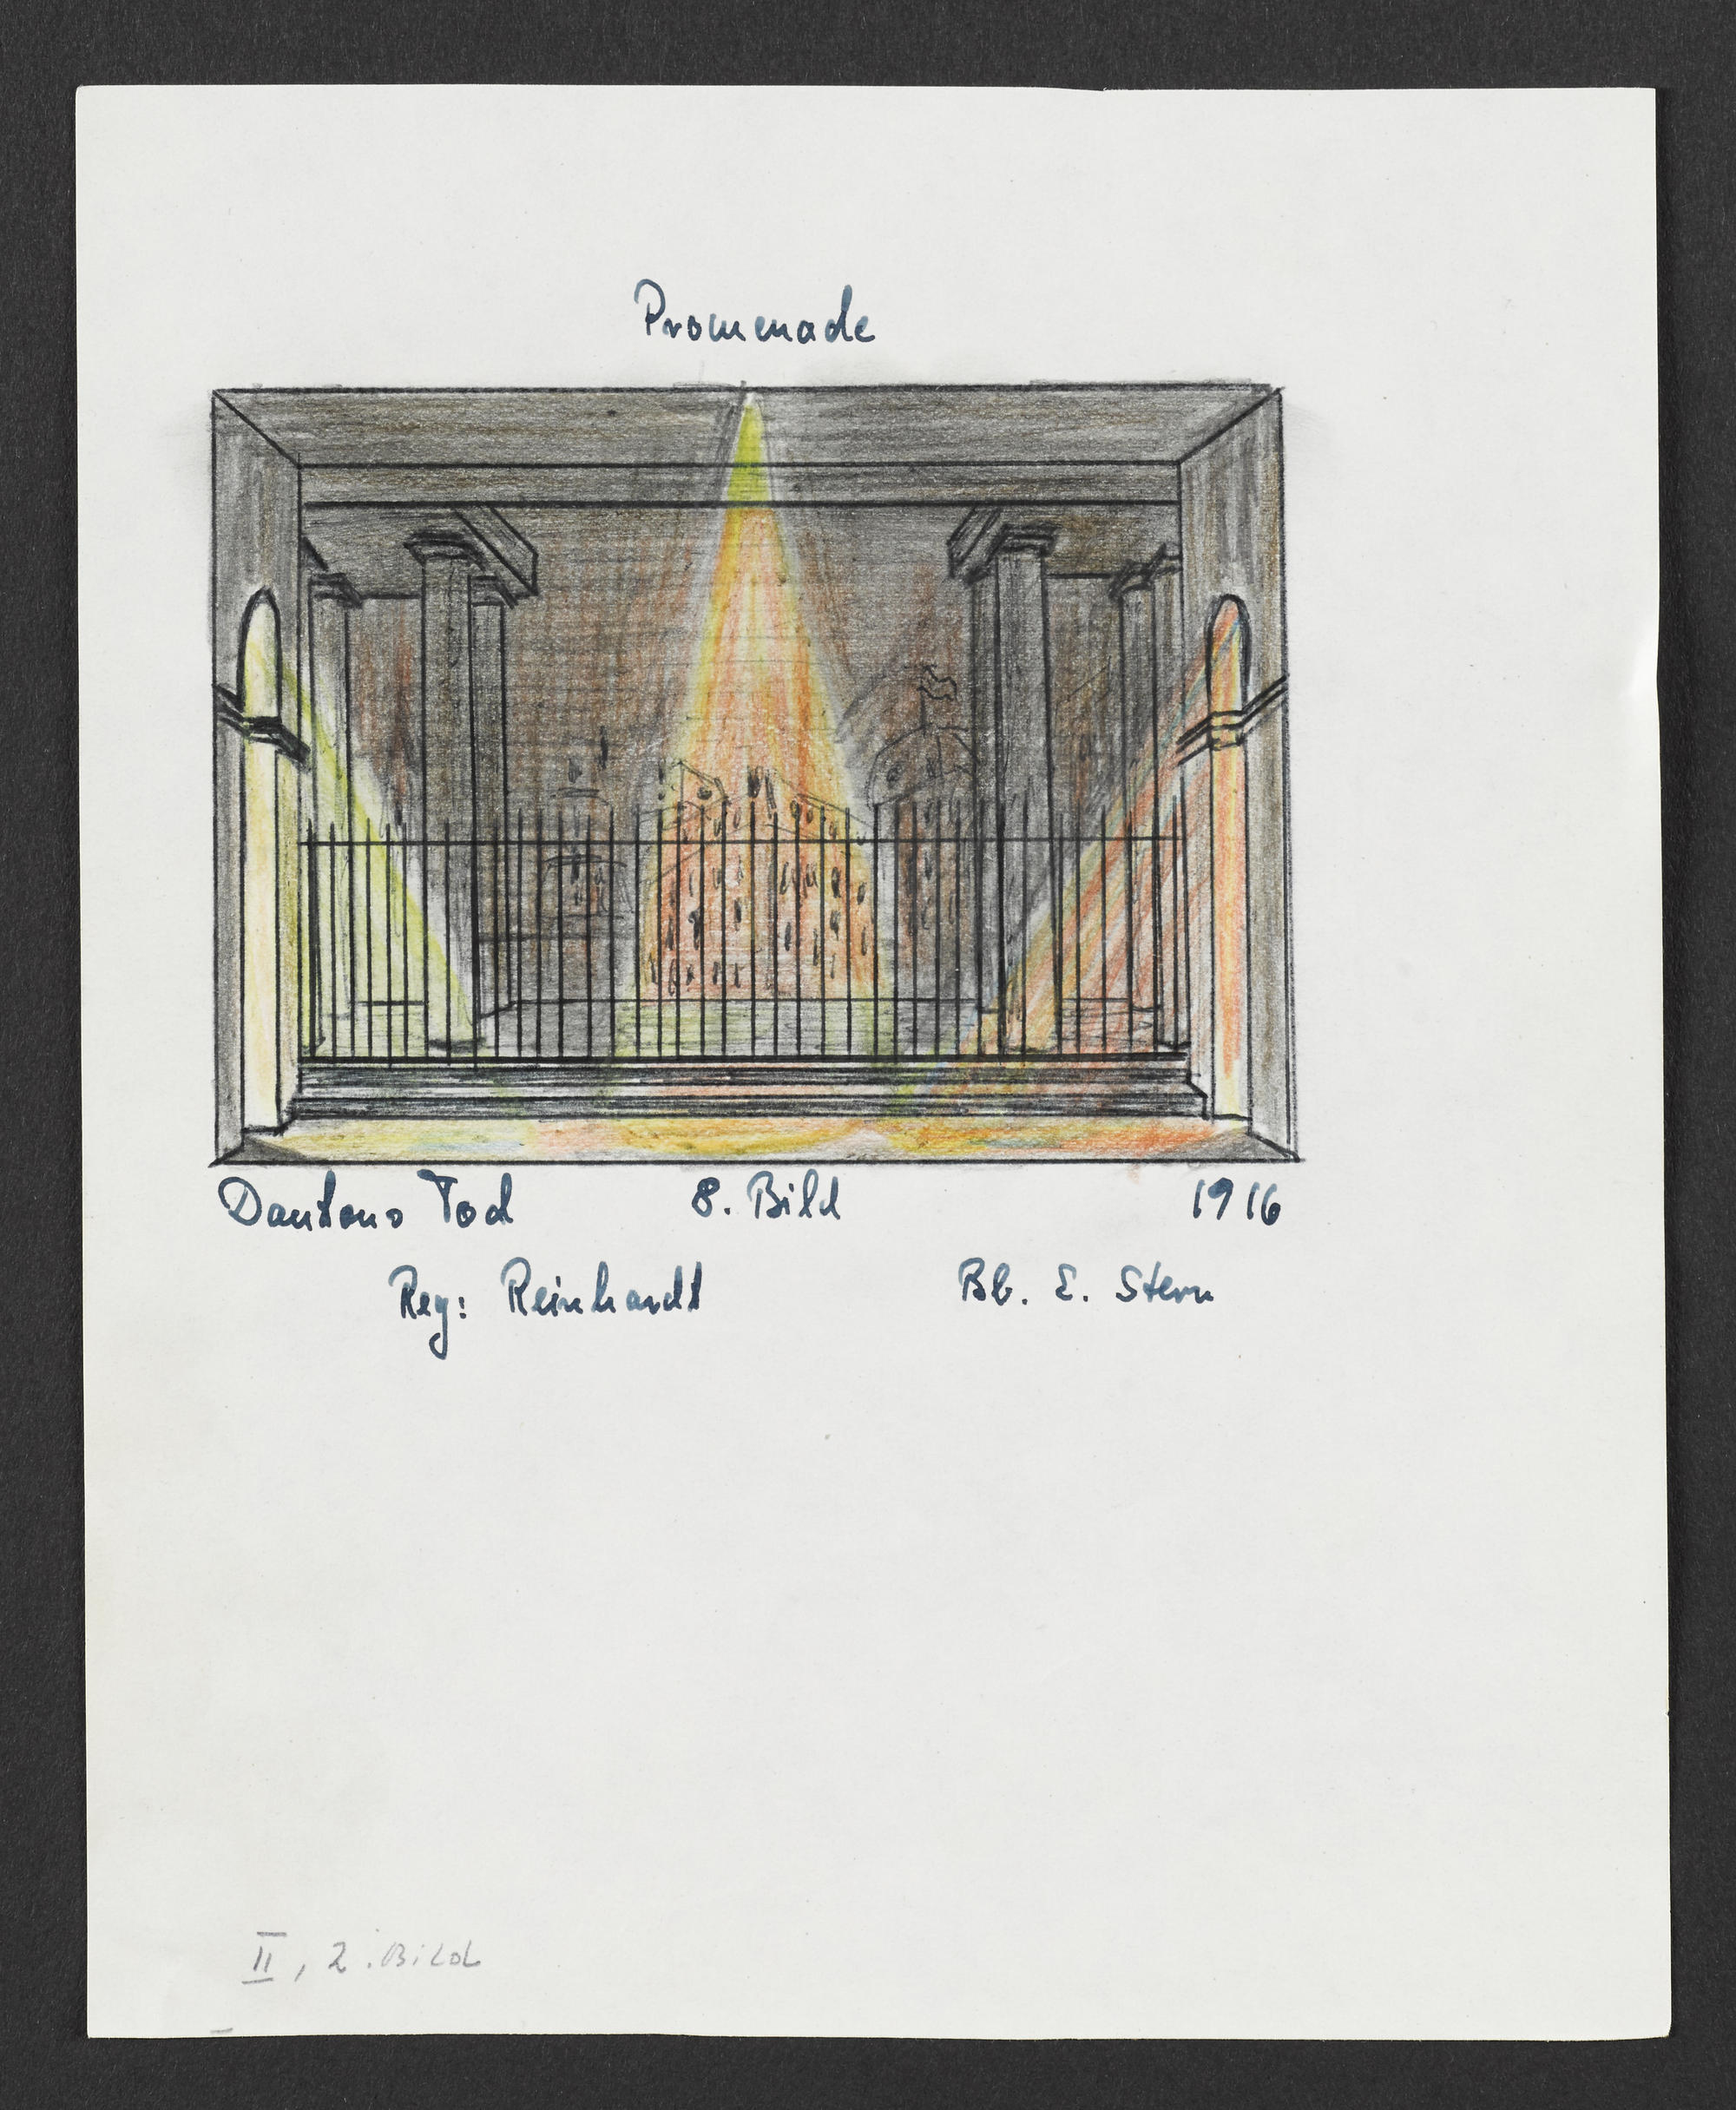 Promenade
Dantons Tod 8. Bild 1916
Reg: Reinhardt Bb. E. Stern
II, 2. Bild